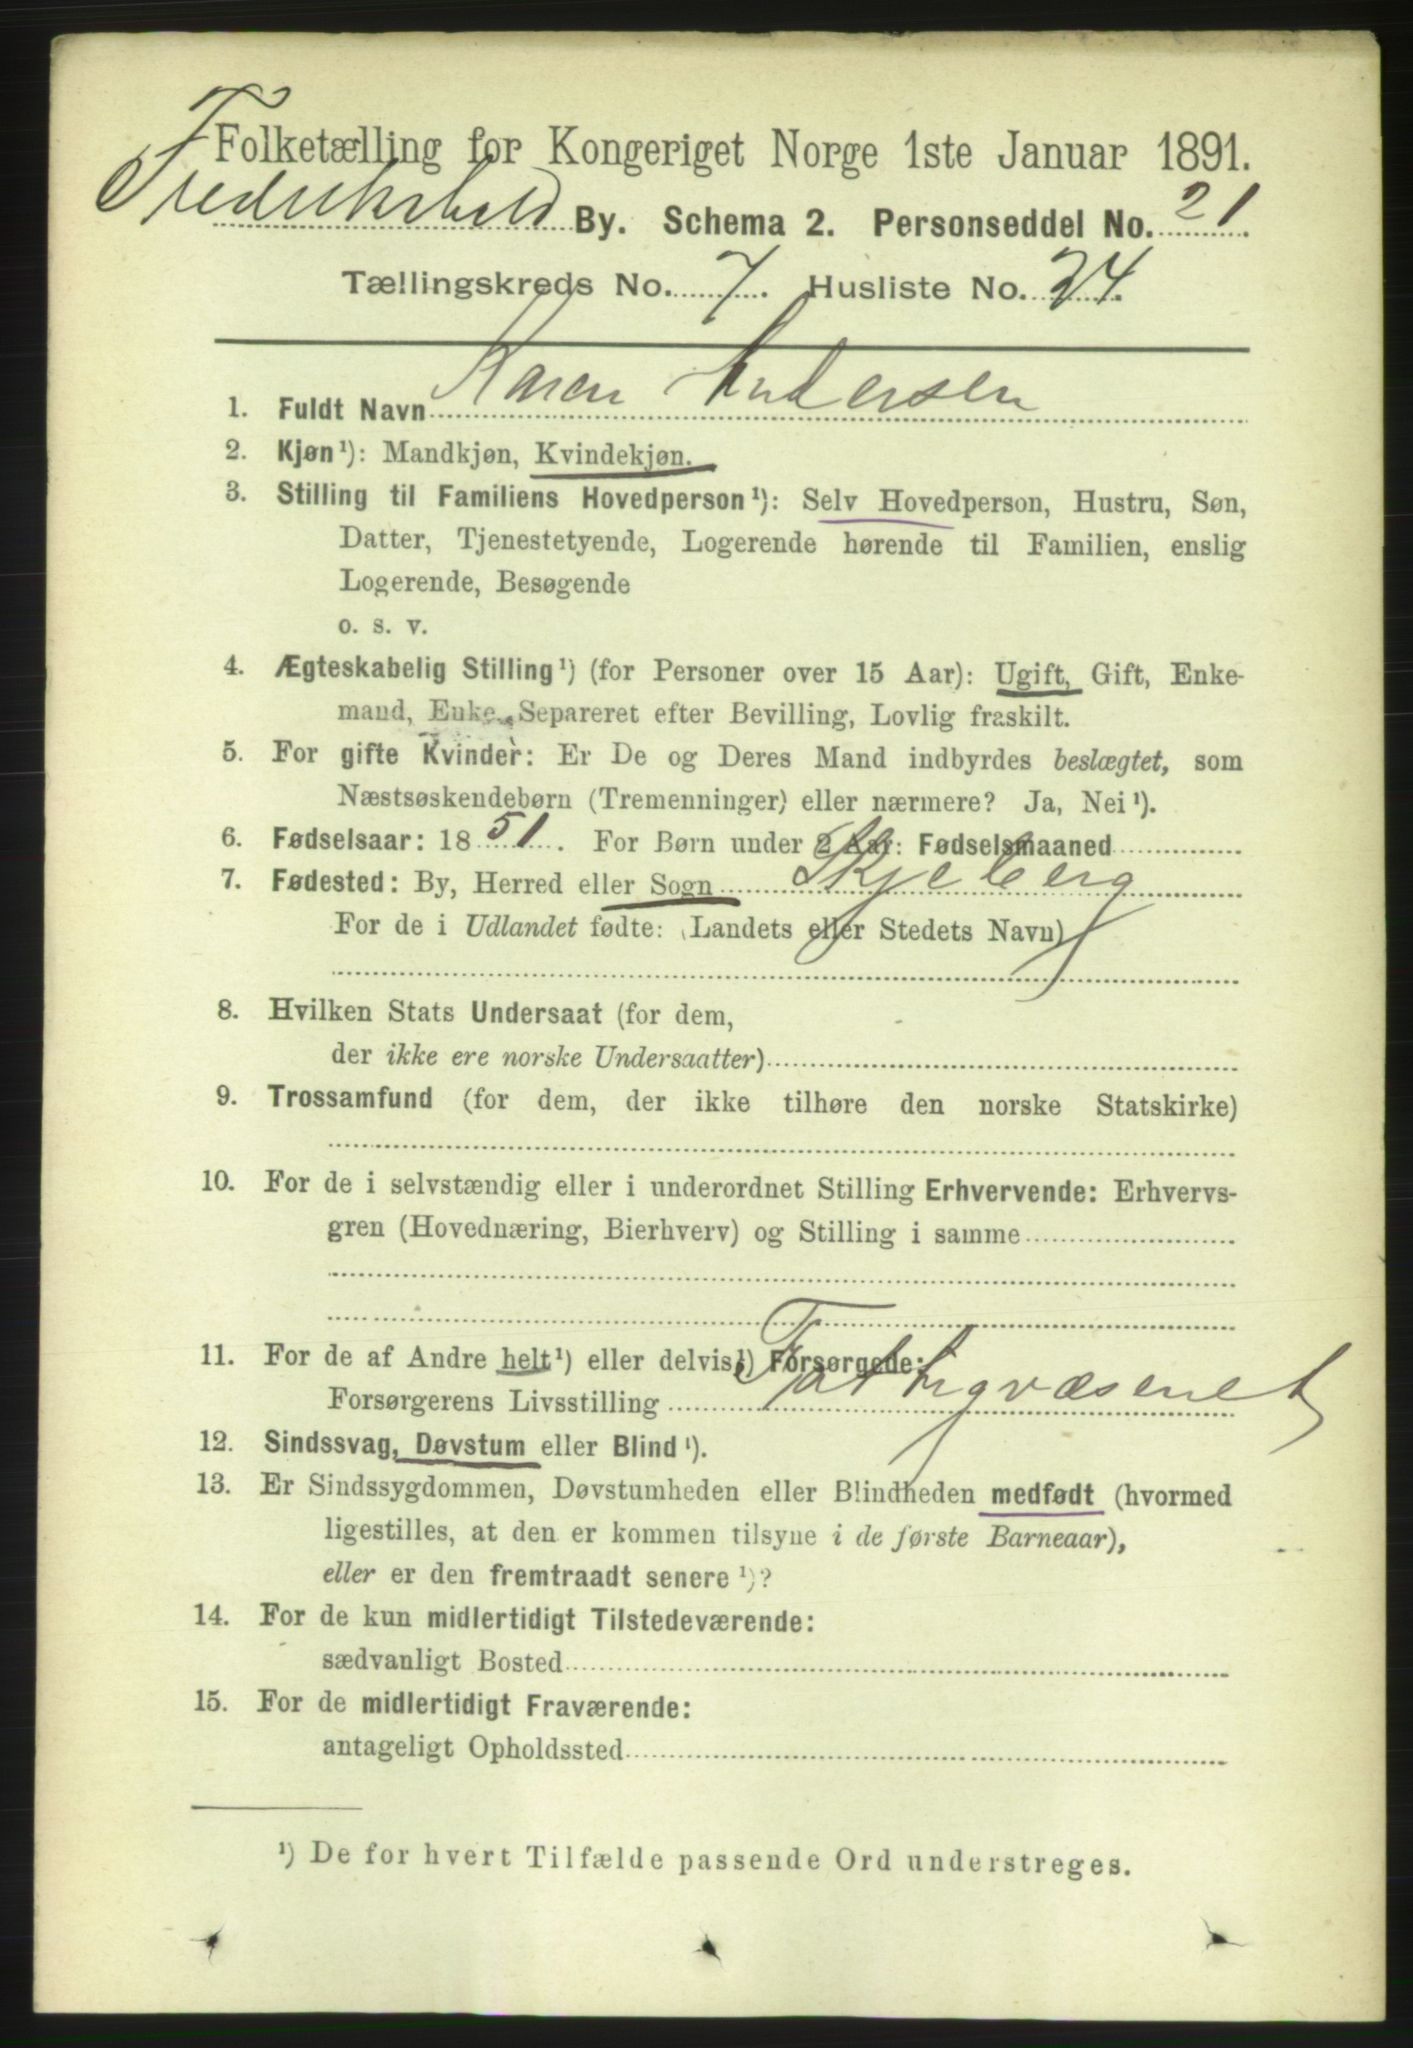 Folketælling for Kongeriget Norge 1ste Januar 1891.
Fredrikshald By. Schema 2. Personseddel No. 21.
Tællingskreds No. 7. Husliste No. 24.
1. Fuldt Navn Karen Andersen
2. Kjøn¹): Mandkjøn, Kvindekjøn.
3. Stilling til Familiens Hovedperson¹): Selv Hovedperson, Hustru, Søn,
Datter, Tjenestetyende, Logerende hørende til Familien, enslig
Logerende, Besøgende
o. s. v.
4. Ægteskabelig Stilling¹) (for Personer over 15 Aar): Ugift, Gift, Enke-
mand, Enke, Separeret efter Bevilling, Lovlig fraskilt.
5. For gifte Kvinder: Er De og Deres Mand indbyrdes beslægtet, som
Næstsøskendebørn (Tremenninger) eller nærmere? Ja, Nei¹).
6. Fødselsaar: 1851. For Børn under 2 Aar: Fødselsmaaned
7. Fødested: By, Herred eller Sogn Skjeberg
For de i Udlandet fødte: (Landets eller Stedets Navn)
8. Hvilken Stats Undersaat (for dem,
der ikke ere norske Undersaatter)
9. Trossamfund (for dem, der ikke tilhøre den norske Statskirke)
10. For de i selvstændig eller i underordnet Stilling Erhvervende: Erhvervs-
gren (Hovednæring, Bierhverv) og Stilling i samme
11. For de af Andre helt¹) eller delvis¹) Forsørgede:
Forsørgerens Livsstilling Fattigvæsenet
12. Sindssvag, Døvstum eller Blind¹).
13. Er Sindssygdommen, Døvstumheden eller Blindheden medfødt (hvormed
ligestilles, at den er kommen tilsyne i de første Barneaar),
eller er den fremtraadt senere¹)?
14. For de kun midlertidigt Tilstedeværende:
sædvanligt Bosted
15. For de midlertidigt Fraværende:
antageligt Opholdssted
¹) De for hvert Tilfælde passende Ord understreges.